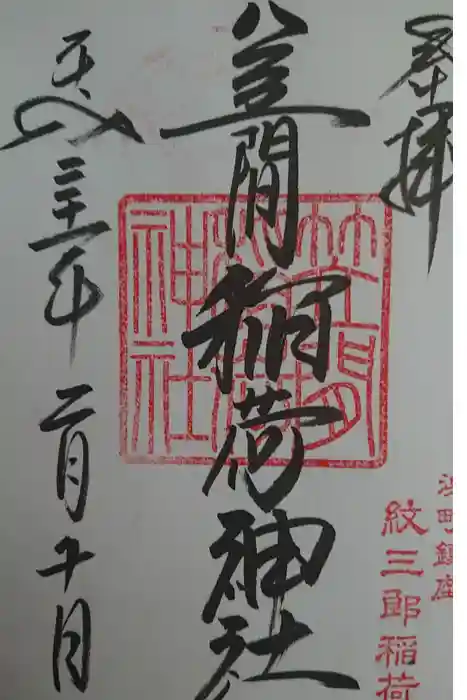 奉拝
笠間稲荷神社
平成三十一年二月十日
笠間
稲荷
神社
浜町鎮座
紋三郎稲荷